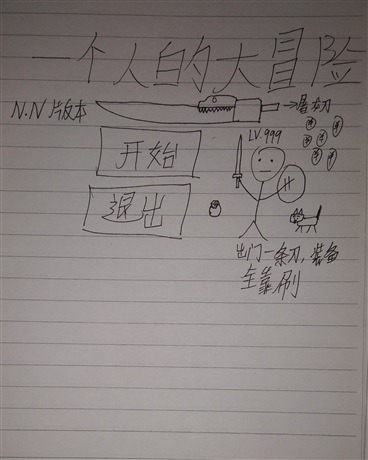 一个人的大冒险
N.N片版本
→屠龙刀
LV.999
开始
退出
出门一条刀,装备
全靠刷